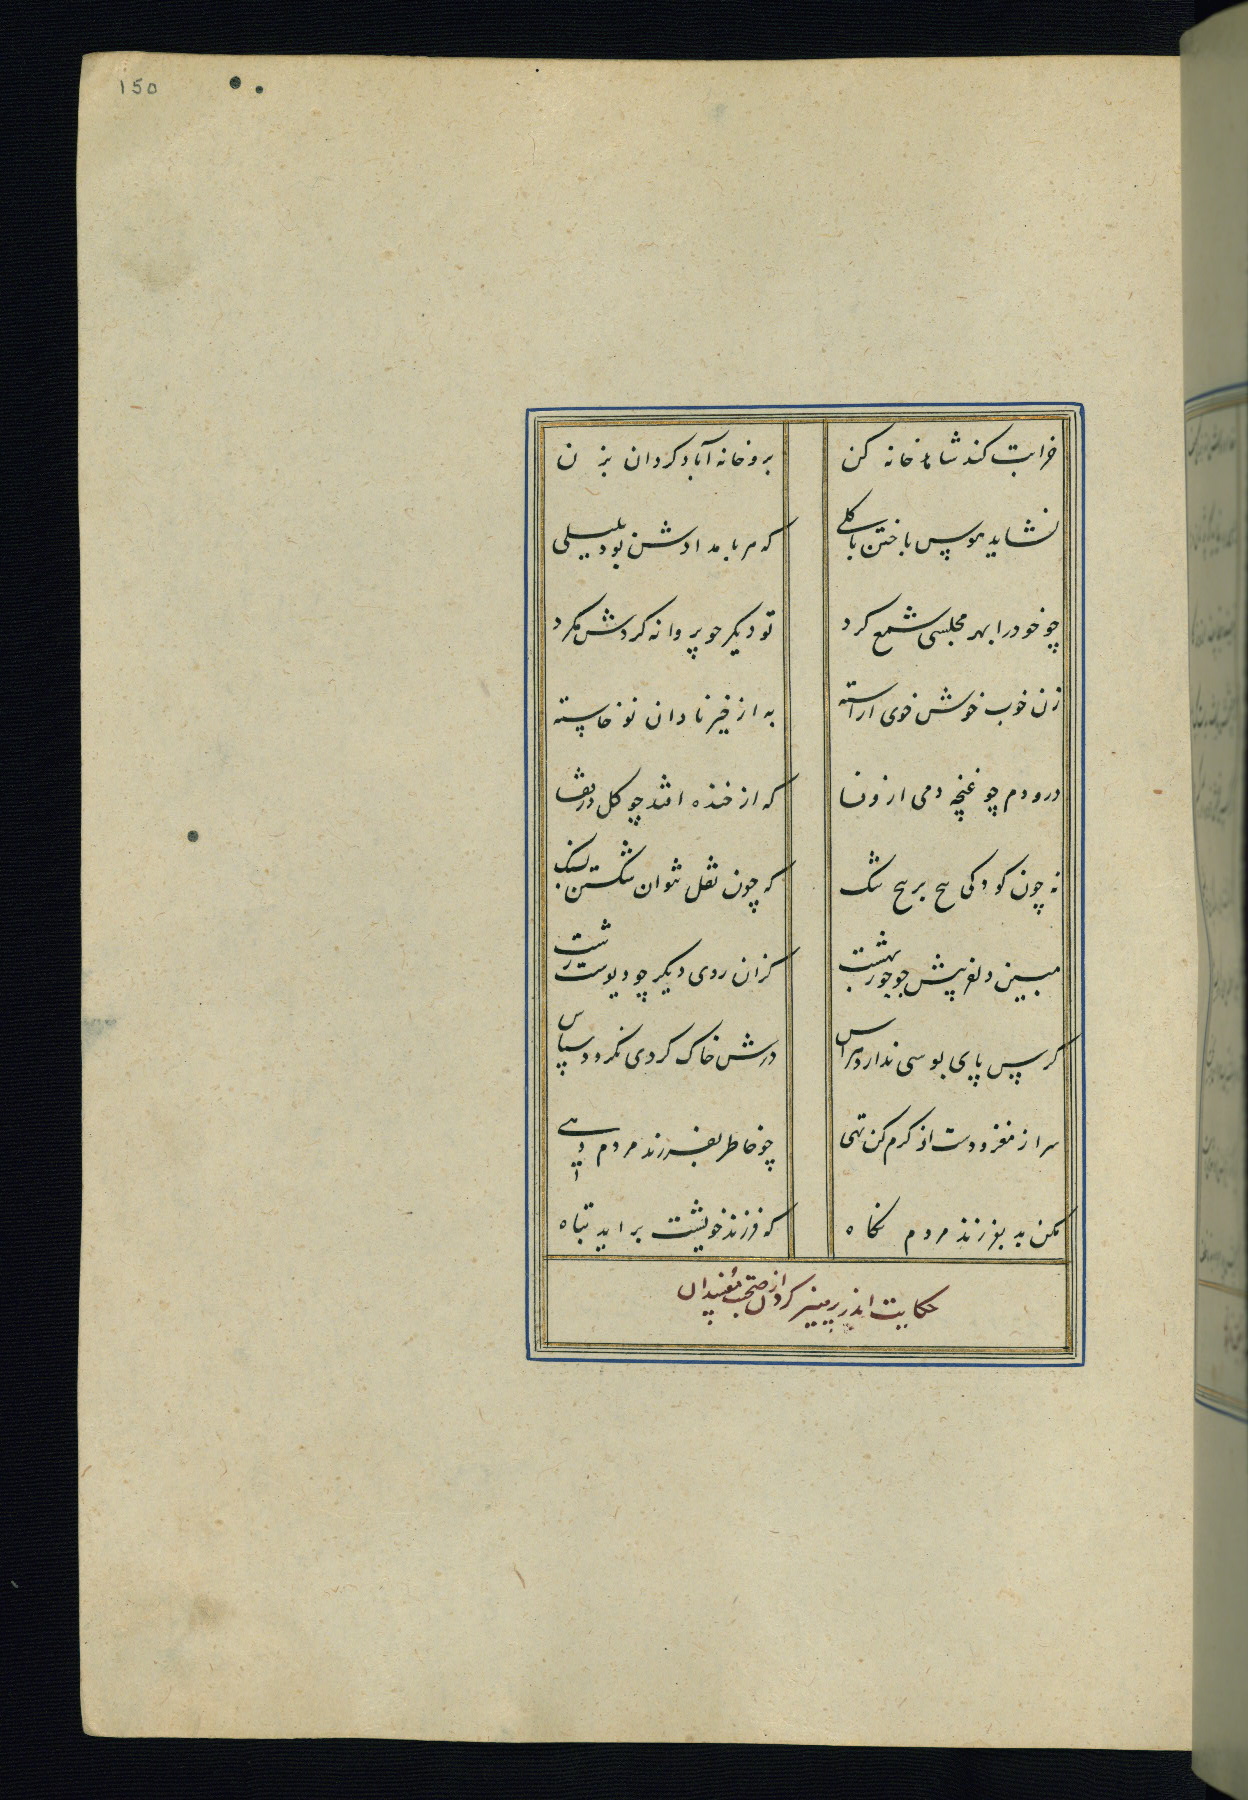 ۱۵۰
خرابت کند شاهد خانه کن
برو خانه آباد کردان بزن
نشاید هوس باختن با کلی
که هر بامدادش بود بلبلی
چو خود را بهر مجلسی شمع کرد
تو دیکر چو پروانه کردش مکرد
زن خوب خوش خوی اراسته
به از خیز نادان نوخاسته
درو دم چو غنچه دمی از وفا
که از خنده افتد چو کل در قفا
نه چون کودکی پیچ بر پیچ شنک
که چون مقل نتوان شکستن بسنک
مبین دلفریبش چو حور بهشت
کزان روی دیکر چو دیوست زشت
کرس پای بوسی ندارد هراس
ورش خاک کردی نکرود سپاس
سر از مغز و دست از کرم کن تهی
چو خاطر بفرزند مردم دهی
مکن بد بفرزند مردم نکاه
که فرزند خویشت براید تباه
حکایت اندر پرهیز کردن از صحبت مفسدان